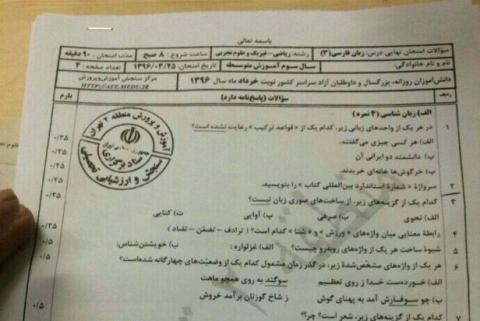 باسمه تعالی
سؤالات امتحان نهایی درس: زبان فارسی (۳) رشته: ریاضی - فیزیک و علوم تجربی ساعت شروع: ۸ صبح مدت امتحان: ۹۰ دقیقه
نام و نام خانوادگی: سال سوم آموزش متوسطه تاریخ امتحان: ۱۳۹۶/۰۳/۲۵ تعداد صفحه: ۴
دانش‌آموزان روزانه، بزرگسال و داوطلبان آزاد سراسر کشور نوبت خرداد ماه سال ۱۳۹۶ مرکز سنجش آموزش و پرورش
HTTP://AEE.MEDU.IR
ردیف سؤالات (پاسخ‌نامه دارد) بارم
الف) زبان شناسی (۴ نمره)
۱ در هر یک از واحدهای زبانی زیر، کدام یک از «قواعد ترکیب» رعایت نشده است؟
الف) هر کسی چیزی می‌گفتند. ۰/۲۵
ب) دانشمند دو ایرانی آن ۰/۲۵
پ) خرگوش‌ها خانه‌ای خریدند. ۰/۲۵
۲ سرواژهٔ «شمارهٔ استاندارد بین‌المللی کتاب» را بنویسید. ۰/۲۵
۳ کدام یک از گزینه‌های زیر، از ساخت‌های صوری زبان نیست؟
الف) نحوی ب) صرفی پ) آوایی ت) کتابی
۴ رابطهٔ معنایی میان واژه‌های «ورزش» و «شنا» کدام است؟ ( ترادف - تضمّن - تضاد )
۵ شیوهٔ ساخت هر یک از واژه‌های روبه‌رو چیست؟ الف) غزلواره: ب) خویشتن‌شناس:
۶ هر یک از واژه‌های مشخّص‌شدهٔ زیر، در گذر زمان مشمول کدام یک از وضعیّت‌های چهارگانه شده‌است؟
الف) خورده‌ست خدا ز روی تعظیم سوگند به روی همچو ماهت
ب) چو سوفارش آمد به پهنای گوش ز شاخ گوزنان برآمد خروش ۰/۵
۷ کدام یک از گزینه‌های زیر، شعر است؟ چرا؟
آموزش و پرورش منطقه ۲ تهران
ستاد برگزاری
سنجش و ارزشیابی تحصیلی